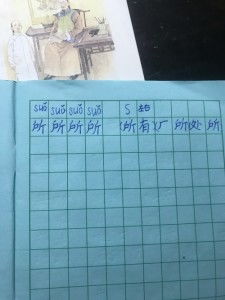 suǒ suǒ suǒ suǒ s
所 所 所 所 所 有 厂 所 处 所